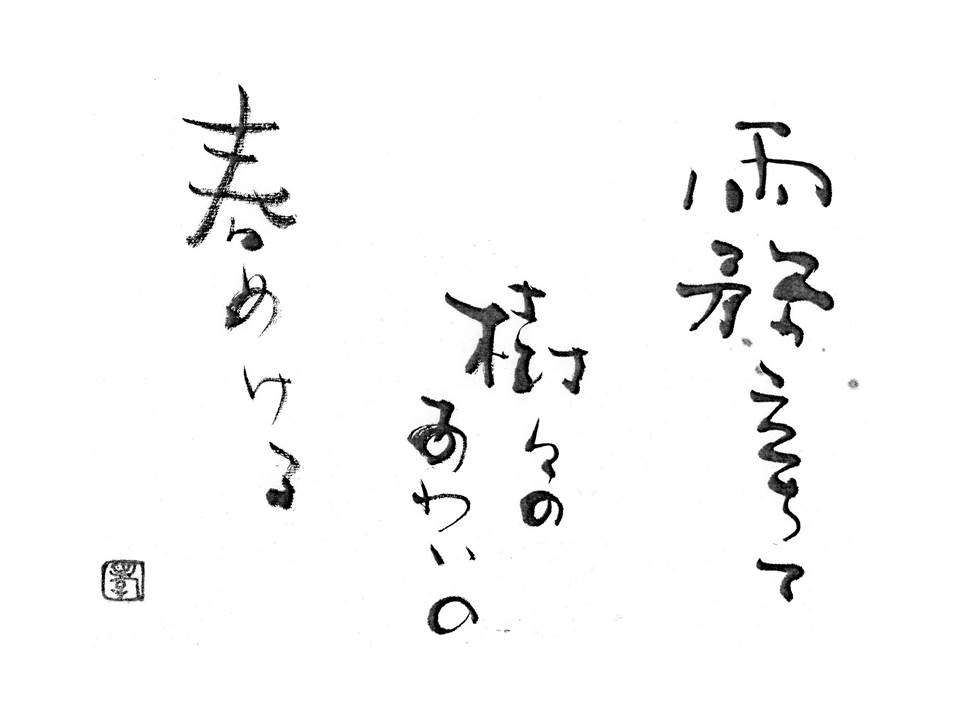 霧立ちて
樹々の
あわいの
春めける